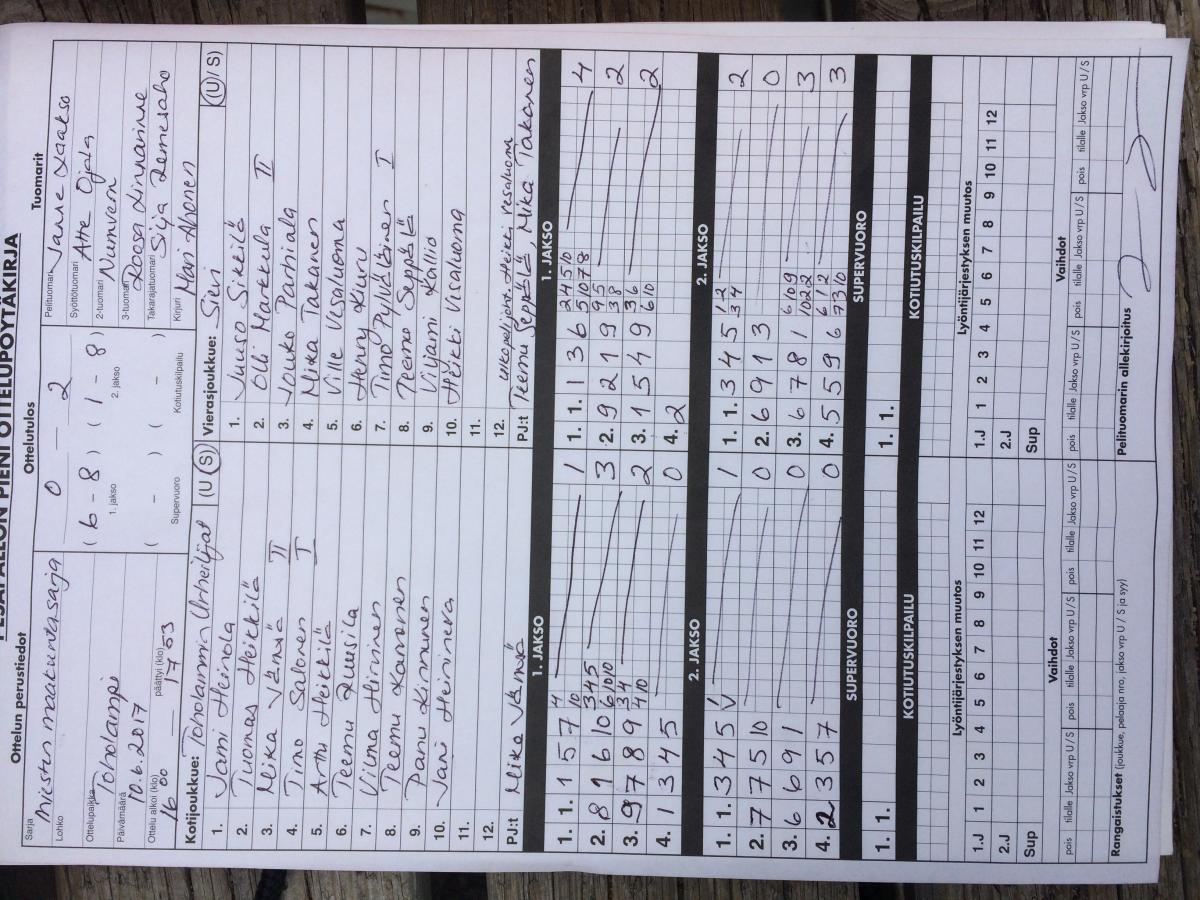 PESÄPALLON PIENI OTTELUPÖYTÄKIRJA
Ottelun perustiedot
Ottelutulos
Tuomarit
Sarja Miesten maakuntasarja
Lohko
Ottelupaikka Toholampi
Päivämäärä 10.6.2017
Ottelu alkoi (klo) 16 00 päättyi (klo) 17 53
0 – 2
( 6 – 8 ) ( 1 – 8 )
1. jakso 2. jakso
( – ) ( – )
Supervuoro Kotiutuskilpailu
Pelituomari Janne Laakso
Syöttötuomari Atte Ojala
2-tuomari Nurmven
3-tuomari Roosa Linnarinne
Takarajatuomari Sija
Kirjuri Mari Ahonen
Kotijoukkue: Toholammin Urheilijat (U S)
1. Jami Heinola
2. Tuomas Heikkilä
3. Mika Vämsä II
4. Timo Salonen I
5. Arttu Heikkilä
6. Teemu Ruusila
7. Vilma Hirvinen
8. Teemu Karvonen
9. Panu Kinnunen
10. Jani Heininen
11.
12.
PJ:t Mika Vämsä
Vierasjoukkue: Sievi (U / S)
1. Juuso Sikkilä
2. Olli Markkula II
3. Jouko Parhiala
4. Mika Takanen
5. Ville Vesaluoma
6. Henry Kiuru
7. Timo Pylväläinen I
8. Teemo Seppälä
9. Viljami Kallio
10. Heikki Visaluoma
11.
12. ulkopelijoht. Heikki Vesaluoma
PJ:t Teemu Seppälä, Mika Takanen
1. JAKSO
1. 1. 1 5 7 4 10 1
2. 8 9 6 10 3 4 5 6 10 10 3
3. 9 7 8 9 3 4 4 10 2
4. 1 3 4 5 0
1. JAKSO
1. 1. 1 3 6 2 4 5 10 5 10 7 8 4
2. 9 2 1 9 9 5 3 8 2
3. 1 5 4 9 3 6 6 10 2
4. 2
2. JAKSO
1. 1. 3 4 5 1 V 1
2. 7 7 5 10 0
3. 6 6 9 1 0
4. 2 3 5 7 0
2. JAKSO
1. 1. 3 4 5 1 2 3 4 2
2. 6 9 1 3 0
3. 6 7 8 1 6 10 9 10 2 2 3
4. 5 5 9 6 6 1 2 7 3 10 3
SUPERVUORO
1. 1.
SUPERVUORO
1. 1.
KOTIUTUSKILPAILU
KOTIUTUSKILPAILU
Lyöntijärjestyksen muutos
1.J 1 2 3 4 5 6 7 8 9 10 11 12
2.J
Sup
Lyöntijärjestyksen muutos
1.J 1 2 3 4 5 6 7 8 9 10 11 12
2.J
Sup
Vaihdot
pois tilalle Jakso vrp U/S pois tilalle Jakso vrp U/S pois tilalle Jakso vrp U/S
Vaihdot
pois tilalle Jakso vrp U/S pois tilalle Jakso vrp U/S pois tilalle Jakso vrp U/S
Rangaistukset (joukkue, pelaaja nro, jakso vrp U / S ja syy)
Pelituomarin allekirjoitus